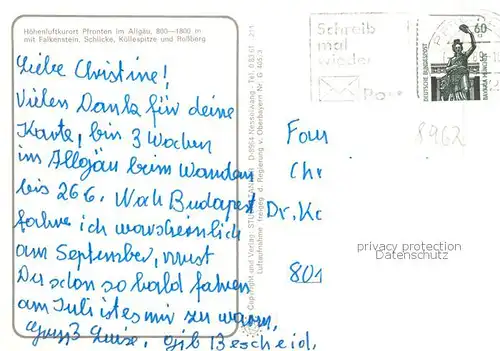 Höhenluftkurort Pfronten im Allgäu, 800—1800 m
mit Falkenstein, Schlicke, Köllespitze und Roßberg
Liebe Christine!
Vielen Dank für deine
Karte, bin 3 Wochen
im Allgäu beim Wandern
bis 26.6. Nach Budapest
fahre ich warscheinlich
am September, must
Du schon so bald fahren
am Juli ist es mir zu warm,
Gruß Luise, gib Bescheid.
Copyright und Verlag: D-8964 Nesselwang
Luftaufnahme freigeg. d. Regierung v. Oberbayern Nr. G
Schreib
mal
wieder
Post
60
DEUTSCHE BUNDESPOST
BAVARIA MÜNCHEN
8962
Fam
Chr
Dr. Kc
801
privacy protection
Datenschutz